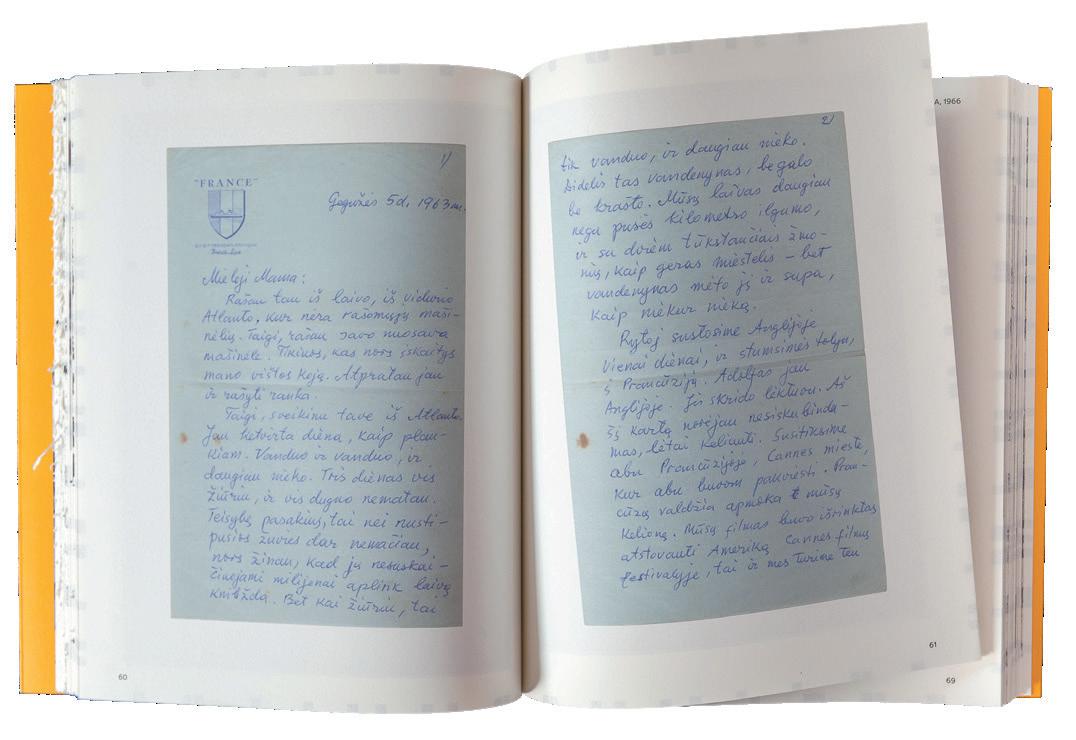 1)
"FRANCE"
French Line
Gegužės 5d, 1963 m.
Mieloji Mama:
Rašau tau iš laivo, iš vidurio
Atlanto, kur nėra rašomųjų maši-
nėlių. Taigi, rašau savo nuosava
mašinėle. Tikiuos, kas nors įskaitys
mano vištos koją. Atpratau jau
ir rašyti ranka.
Taigi, sveikinu tave iš Atlanto.
Jau ketvirta diena, kaip plau-
kiam. Vanduo ir vanduo, ir
daugiau nieko. Tris dienas vis
žiūriu, ir vis dugno nematau.
Teisybę pasakius, tai nei nusti-
pusios žuvies dar nemačiau,
nors žinau, kad jų nesuskai-
činėjami milijonai aplink laivą
knibžda. Bet kai žiūriu, tai
60
2)
tik vanduo, ir daugiau nieko.
Didelis tas vandenynas, be galo
be krašto. Mūsų laivas daugiau
negu pusės kilometro ilgumo,
ir su dviem tūkstančiais žmo-
nių, kaip geras miestelis – bet
vandenynas mėto jį ir supa,
kaip niekur nieką.
Rytoj sustosime Anglijoje
vienai dienai, ir stumsimės toliau,
į Prancūziją. Adolfas jau
Anglijoje. Jis skrido lėktuvu. Aš
šį kartą norėjau nesiskubinda-
mas, lėtai keliauti. Susitiksime
abu Prancūzijoje, Cannes mieste,
kur abu buvom pakviesti. Pran-
cūzų valdžia apmoka mūsų
kelionę. Mūsų filmas buvo išrinktas
atstovauti Ameriką Cannes filmų
festivalyje, tai ir mes turime ten
61
A, 1966
69